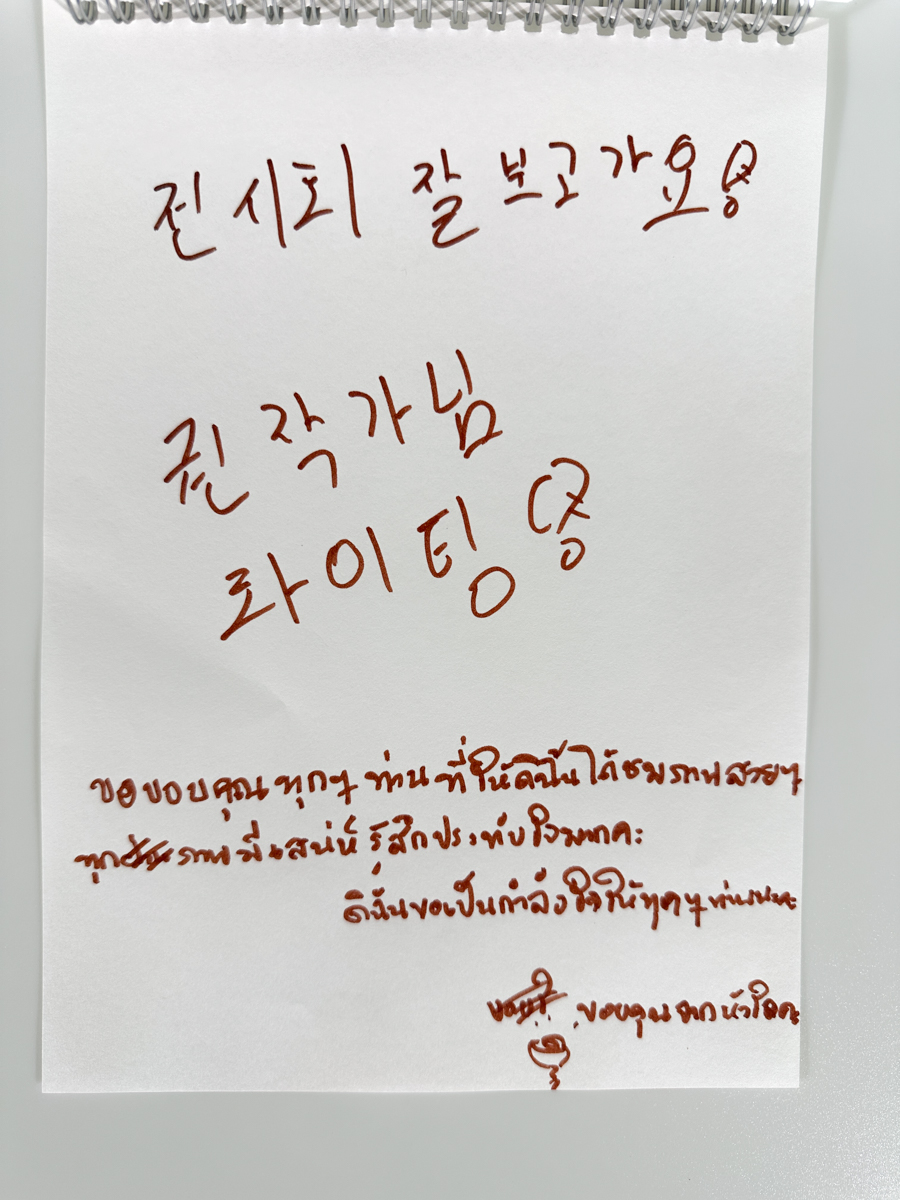 전시회 잘 보고 가요
작가님
화이팅
ขอขอบคุณทุกๆ ท่าน ที่ให้ดิฉันได้ชมภาพสวยๆ
ทุก ภาพมีเสน่ห์ รู้สึกประทับใจมากคะ
ดิฉันขอเป็นกำลังใจให้ทุกๆ ท่านนะคะ
ขอบคุณจากหัวใจคะ